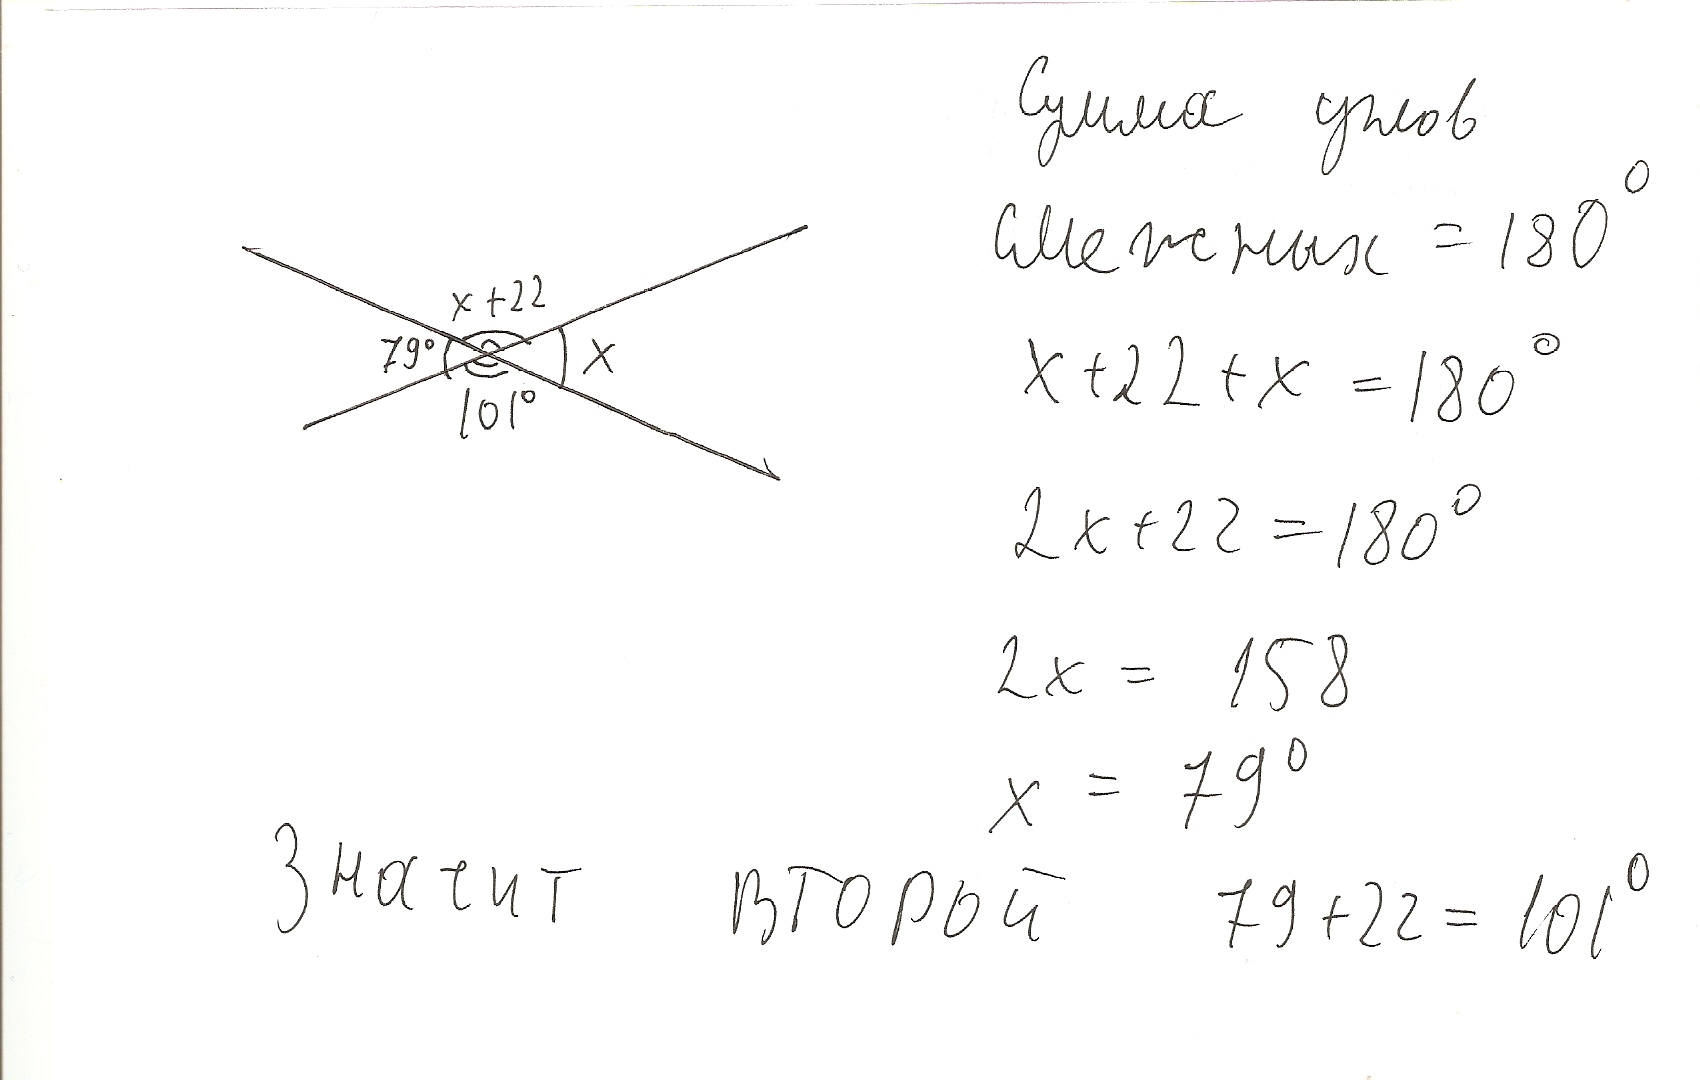 x+22
79°
x
101°
Сумма углов
смежных = 180°
x+22+x = 180°
2x+22 = 180°
2x = 158
x = 79°
Значит второй 79+22 = 101°